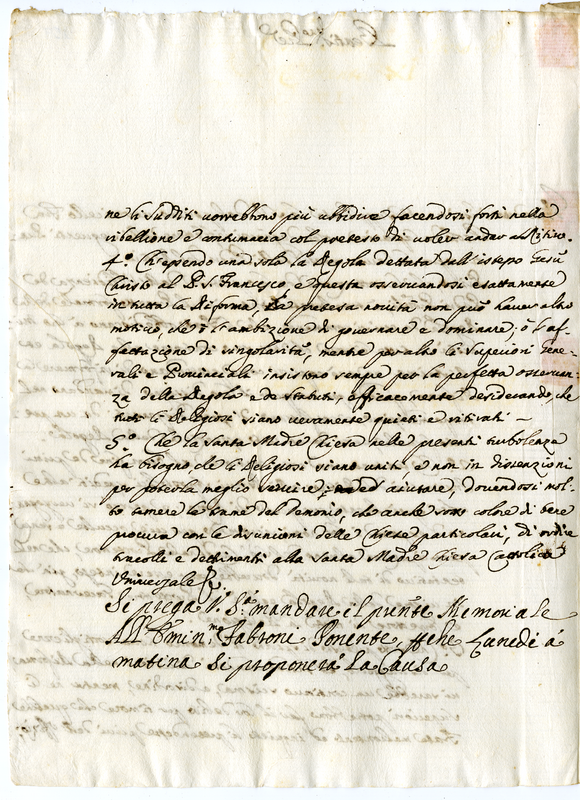 ne li sudditi vorrebbono più ubbidire facendosi forti nella
ribellione e contumacia col pretesto di voler andar al Ritiro.
4.º Ch'essendo una sola la Regola dettata dall'istesso Giesù
Christo al P. S. Francesco, e questa osservandosi esattamente
in tutta la Riforma, la pretesa novità non può haver altro
motivo, che ò l'ambizione di governare e dominare; ò l'af-
fettazione di singolarità, mentre per altro li Superiori Gene-
rali e Provinciali insistono sempre per la perfetta osservan-
za della Regola e de Statuti, efficacemente desiderando, che
tutti li Religiosi siano veramente quieti e ritirati –
5.º Che la Santa Madre Chiesa nelle presenti turbolenze
ha bisogno, che li Religiosi siano uniti e non in dissenzioni
per poterla meglio servire, ed aiutare, dovendosi mol-
to temere le trame del Demonio, che anche sotto colore di bene
procura con le disunioni delle Chiese particolari, di ordire
tracolli e detrimenti alla Santa Madre Chiesa Cattolica
Universale
Si prega V. S.ª mandare il pnte Memoriale
All' Emin.mo Fabroni Ponente, che Lunedi à
matina si proponerà la Causa